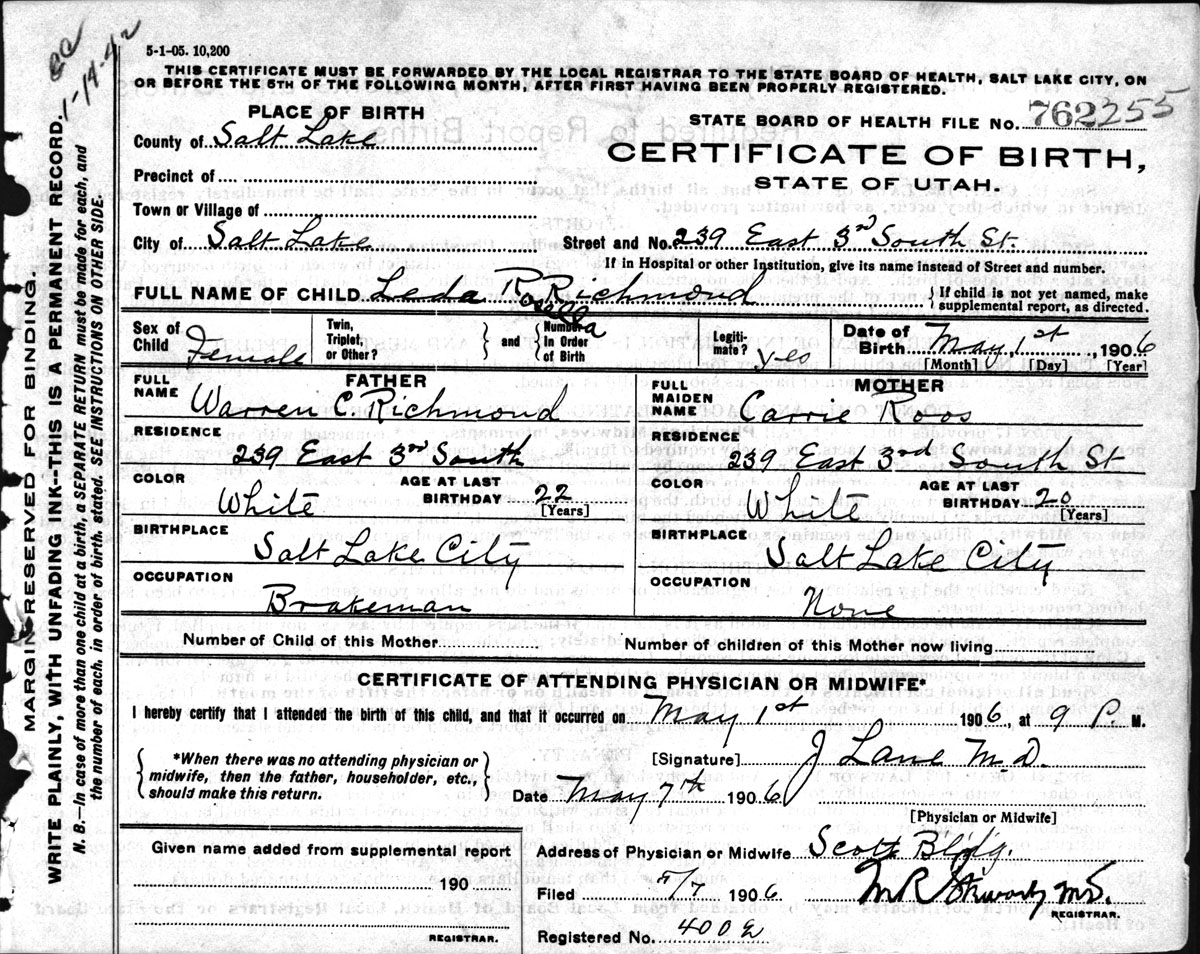 1-14-42
5-1-05. 10,200
THIS CERTIFICATE MUST BE FORWARDED BY THE LOCAL REGISTRAR TO THE STATE BOARD OF HEALTH, SALT LAKE CITY, ON
OR BEFORE THE 5TH OF THE FOLLOWING MONTH, AFTER FIRST HAVING BEEN PROPERLY REGISTERED.
PLACE OF BIRTH
STATE BOARD OF HEALTH FILE No. 762355
County of Salt Lake
CERTIFICATE OF BIRTH,
STATE OF UTAH.
Precinct of
Town or Village of
City of Salt Lake Street and No. 239 East 3rd South St.
If in Hospital or other Institution, give its name instead of Street and number.
FULL NAME OF CHILD Leda R Richmond
Rosella
{ If child is not yet named, make
supplemental report, as directed.
Sex of Child Female
Twin, Triplet, or Other? } and { Number in Order of Birth
Legitimate? yes
Date of Birth May 1st 1906
[Month] [Day] [Year]
FATHER
FULL NAME Warren C. Richmond
RESIDENCE
239 East 3rd South
COLOR White AGE AT LAST BIRTHDAY 22 [Years]
BIRTHPLACE
Salt Lake City
OCCUPATION
Brakeman
MOTHER
FULL MAIDEN NAME Carrie Roos
RESIDENCE
239 East 3rd South St.
COLOR White AGE AT LAST BIRTHDAY 20 [Years]
BIRTHPLACE
Salt Lake City
OCCUPATION
None
Number of Child of this Mother Number of children of this Mother now living
CERTIFICATE OF ATTENDING PHYSICIAN OR MIDWIFE*
I hereby certify that I attended the birth of this child, and that it occurred on May 1st 1906, at 9 P. M.
{ *When there was no attending physician or
midwife, then the father, householder, etc.,
should make this return. }
[Signature] J Lane M.D.
Date May 7th 1906
[Physician or Midwife]
Given name added from supplemental report
190
REGISTRAR.
Address of Physician or Midwife Scott Bldg.
Filed 5/7 1906
M.D.
REGISTRAR.
Registered No.
MARGIN RESERVED FOR BINDING.
WRITE PLAINLY, WITH UNFADING INK—THIS IS A PERMANENT RECORD.
N. B.—In case of more than one child at a birth, a SEPARATE RETURN must be made for each, and
the number of each, in order of birth, stated. SEE INSTRUCTIONS ON OTHER SIDE.